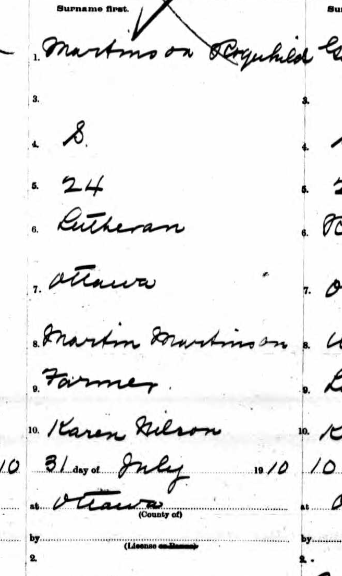 Surname first.
1. Martinson Rognhild
3.
4. S.
5. 24
6. Lutheran
7. Ottawa
8. Martin Martinson
9. Farmer.
10. Karen Nilson
31 day of July 1910
at Ottawa
(County of)
by
(License or Banns)
2.